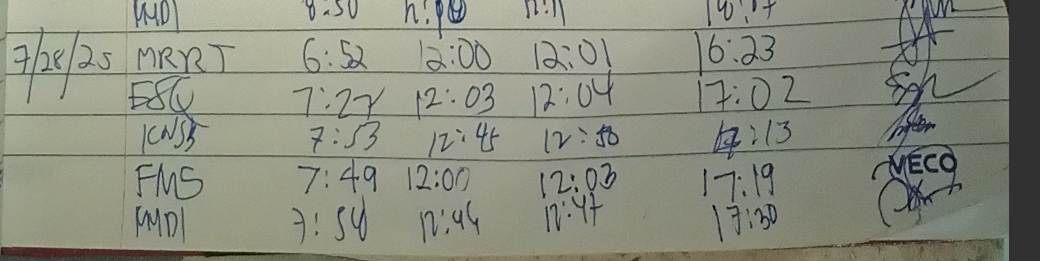 7/28/25 MRRT 6:52 12:00 12:01 16:23
ESQ 7:27 12:03 12:04 17:02
KNSB 7:53 12:45 12:50 17:13
FMS 7:49 12:00 12:03 17:19
VECO
KMDI 7:54 12:46 12:47 17:30